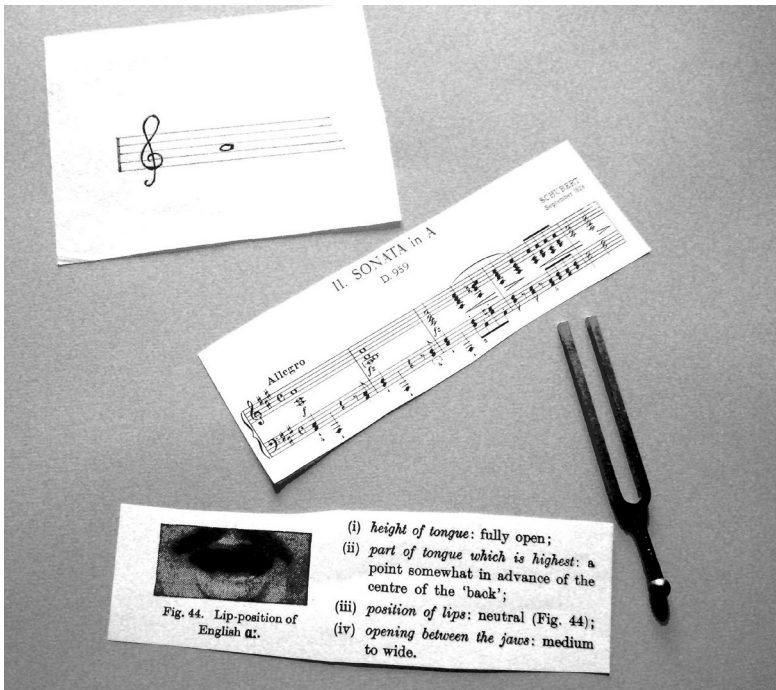 II. SONATA in A
D. 959
SCHUBERT
September 1828
Allegro
f
fz
fz
Fig. 44. Lip-position of
English ɑː.
(i) height of tongue: fully open;
(ii) part of tongue which is highest: a
point somewhat in advance of the
centre of the ‘back’;
(iii) position of lips: neutral (Fig. 44);
(iv) opening between the jaws: medium
to wide.